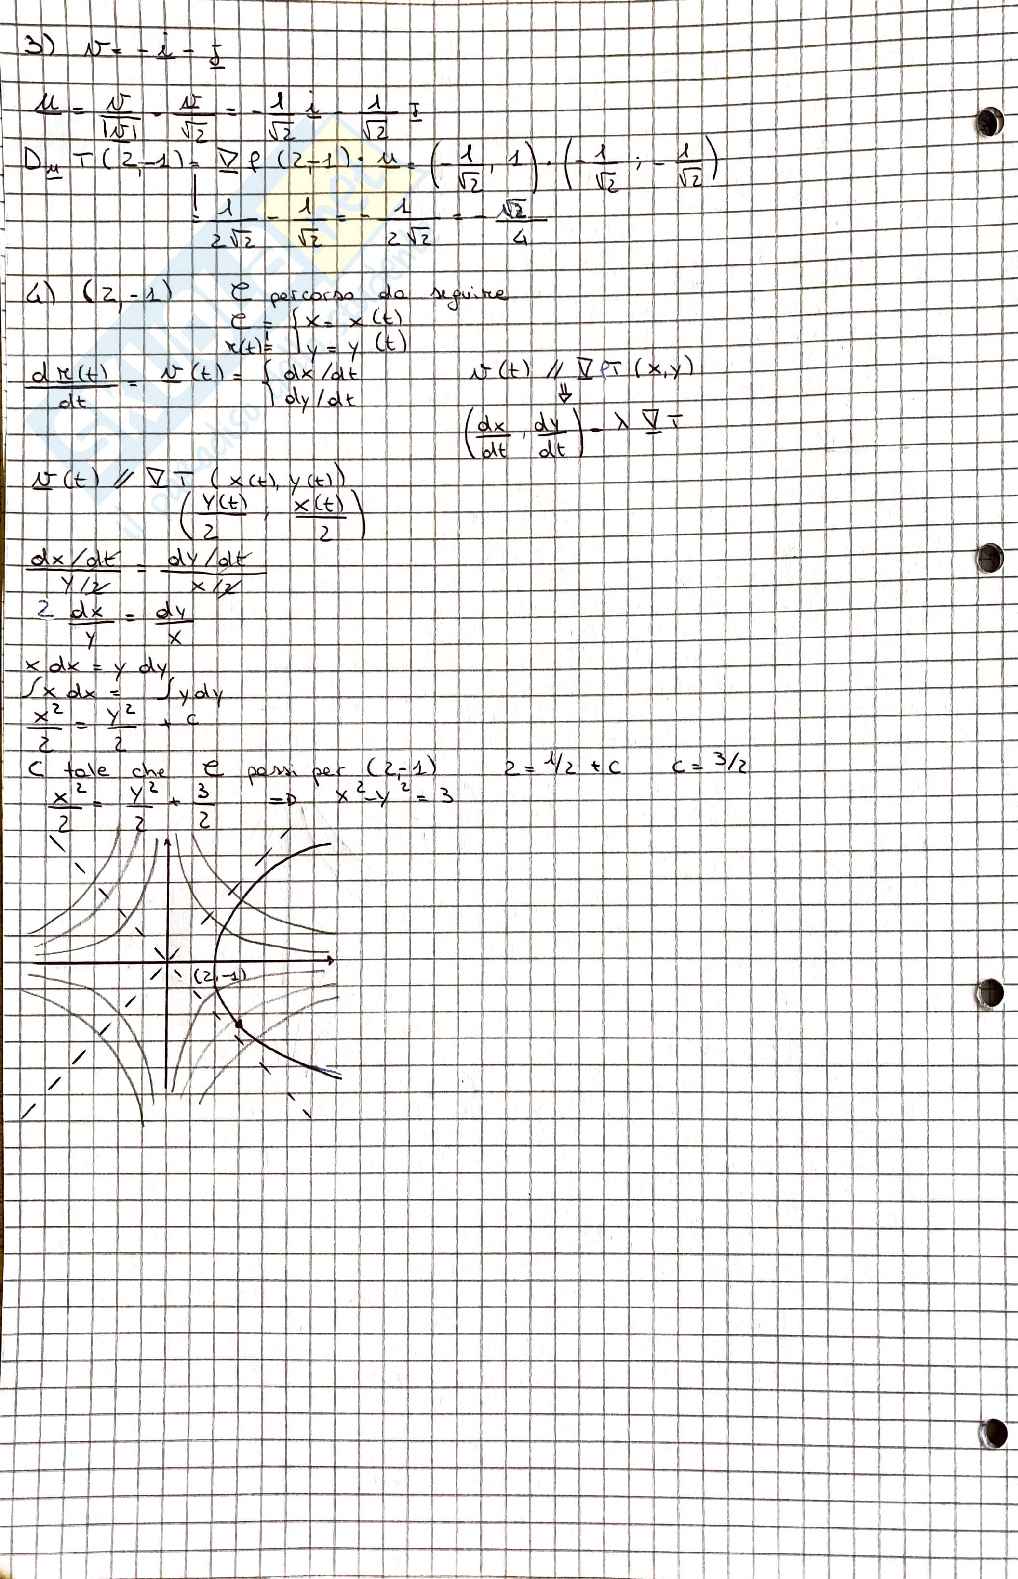 3) v = - i - j
u = v/|v| = v/√2 = - 1/√2 i - 1/√2 j
D_u T (2,-1) = ∇ f (2,-1) · u = (- 1/√2 , 1) · (- 1/√2 ; - 1/√2)
= 1/2√2 - 1/√2 = - 1/2√2 = - √2/4
4) (2,-1) C percorso da seguire
C = { x = x(t)
r(t) = { y = y(t)
dr(t)/dt = v(t) = { dx/dt
{ dy/dt
v(t) // ∇fT (x,y)
⇓
(dx/dt , dy/dt) = λ ∇T
v(t) // ∇T (x(t), y(t))
(y(t)/2 ; x(t)/2)
dx/dt / y/2 = dy/dt / x/2
2 dx/y = dy/x
x dx = y dy
∫x dx = ∫y dy
x²/2 = y²/2 + c
C tale che C passi per (2,-1) 2 = 1/2 + c c = 3/2
x²/2 = y²/2 + 3/2 => x² - y² = 3
(2,-1)